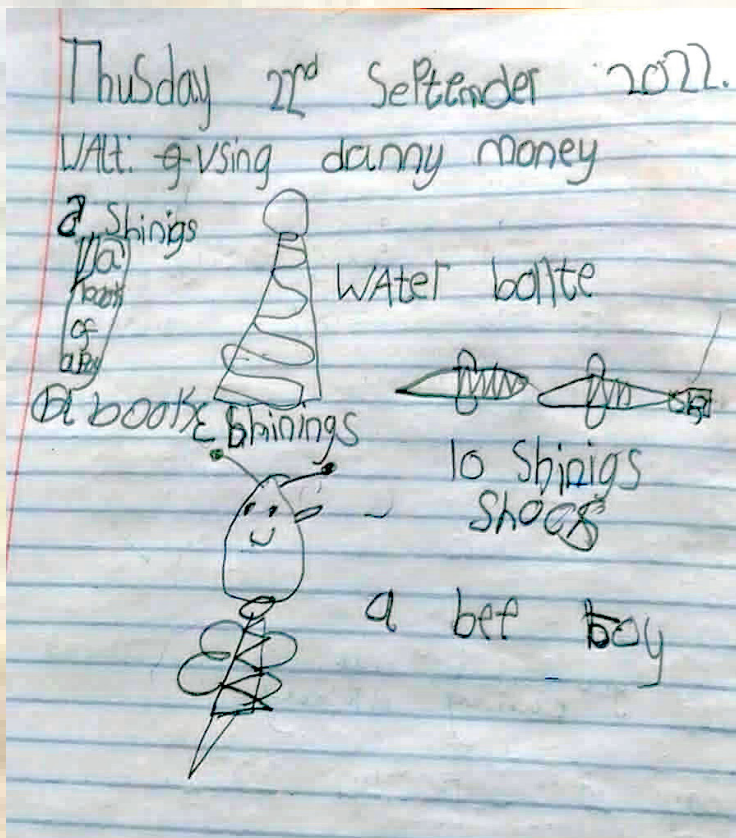 Thusday 22nd September 2022.
WALt. using danny money
2 Shinigs
WAter bollte
a book
of
A book
8 Shinings
10 Shinigs
Shoes
a bee boy